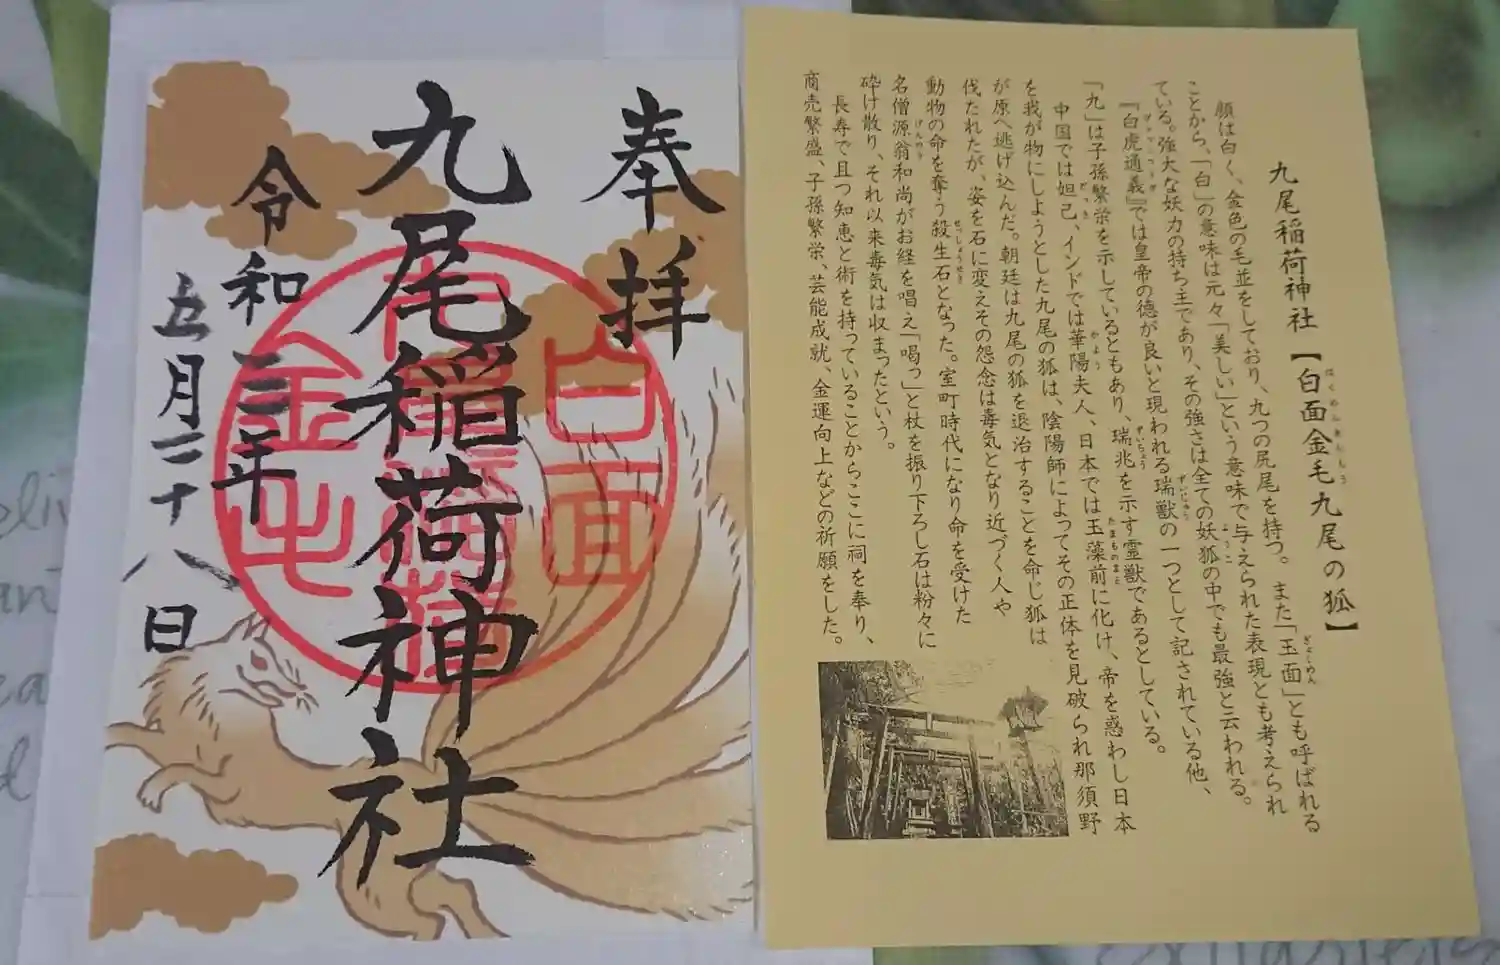 奉拝
九尾稲荷神社
令和三年
五月二十八日
白面
金毛
九尾稲荷神社【白面金毛九尾の狐】
顔は白く、金色の毛並をしており、九つの尻尾を持つ。また「玉面」とも呼ばれる
ことから、「白」の意味は元々「美しい」という意味で与えられた表現とも考えられ
ている。強大な妖力の持ち主であり、その強さは全ての妖狐の中でも最強と云われる。
『白虎通義』では皇帝の徳が良いと現われる瑞獣の一つとして記されている他、
「九」は子孫繁栄を示しているともあり、瑞兆を示す霊獣であるとしている。
中国では妲己、インドでは華陽夫人、日本では玉藻前に化け、帝を惑わし日本
を我が物にしようとした九尾の狐は、陰陽師によってその正体を見破られ那須野
が原へ逃げ込んだ。朝廷は九尾の狐を退治することを命じ狐は
伐たれたが、姿を石に変えその怨念は毒気となり近づく人や
動物の命を奪う殺生石となった。室町時代になり命を受けた
名僧源翁和尚がお経を唱え「喝っ」と杖を振り下ろし石は粉々に
砕け散り、それ以来毒気は収まったという。
長寿で且つ知恵と術を持っていることからここに祠を奉り、
商売繁盛、子孫繁栄、芸能成就、金運向上などの祈願をした。